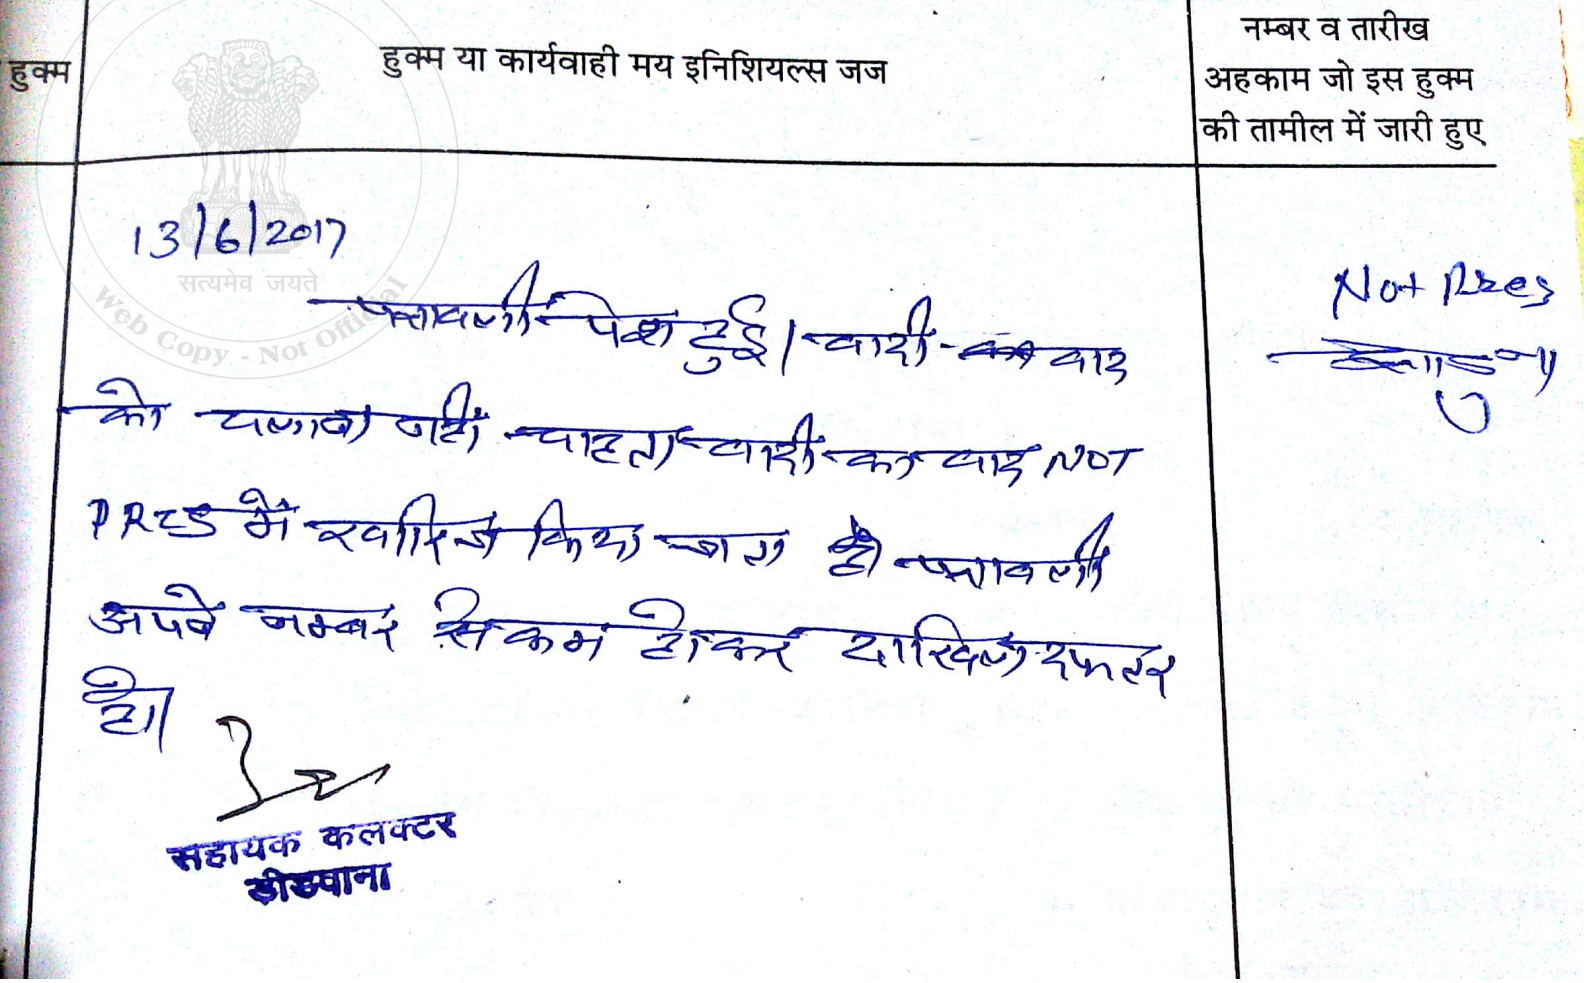 हुक्म
हुक्म या कार्यवाही मय इनिशियल्स जज
नम्बर व तारीख
अहकाम जो इस हुक्म
की तामील में जारी हुए
सत्यमेव जयते
Web Copy - Not Official
13/6/2017
पत्रावली पेश हुई। वादी वाद
को चलाना नहीं चाहता वादी का वाद NOT
PRES में खारिज किया जाता है पत्रावली
अपने नम्बर से कम होकर दाखिल दफ्तर
हो।
Not Pres
सहायक कलक्टर
डीडवाना